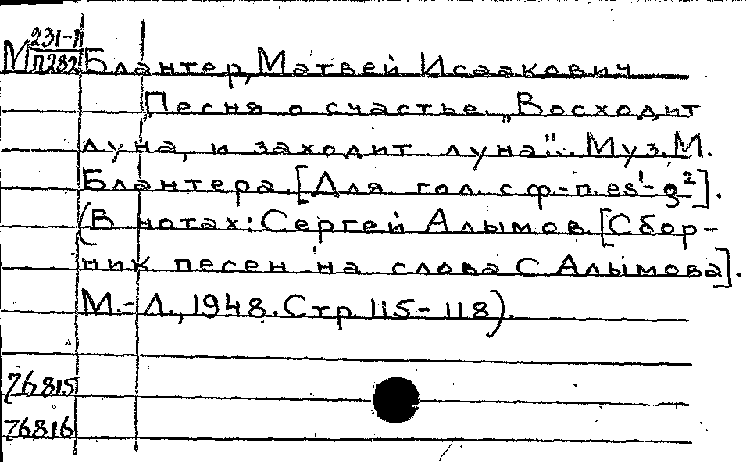 М 231-1
П282 Блантер, Матвей Исаакович
Песня о счастье. „Восходит
луна, и заходит луна". Муз. М.
Блантера. [Для гол. с ф-п. es¹-g²].
(В нотах: Сергей Алымов. [Сбор-
ник песен на слова С. Алымова].
М.-Л., 1948. Стр. 115-118).
76815
76816